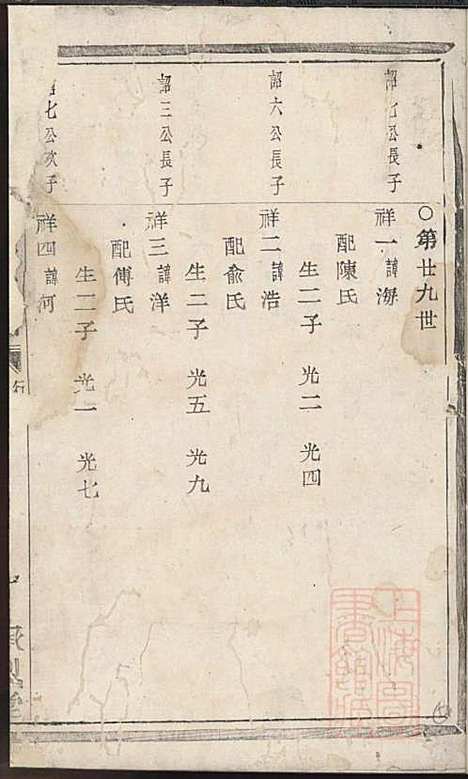 ○第廿九世
詔七公長子
祥一諱海
配陳氏
生二子 光二 光四
詔六公長子
祥二諱浩
配俞氏
生二子 光五 光九
詔三公長子
祥三諱洋
配傅氏
生二子 光一 光七
七公次子
祥四諱河